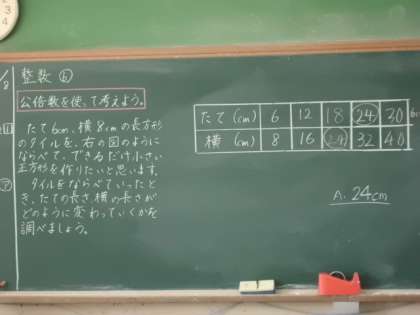 整数 ⑥
公倍数を使って考えよう。
たて6cm、横8cmの長方形
のタイルを、右の図のように
ならべて、できるだけ小さい
正方形を作りたいと思います。
タイルをならべていったと
き、たての長さ、横の長さが
どのように変わっていくかを
調べましょう。
たて(cm) 6 12 18 24 30
横(cm) 8 16 24 32 40
A. 24cm